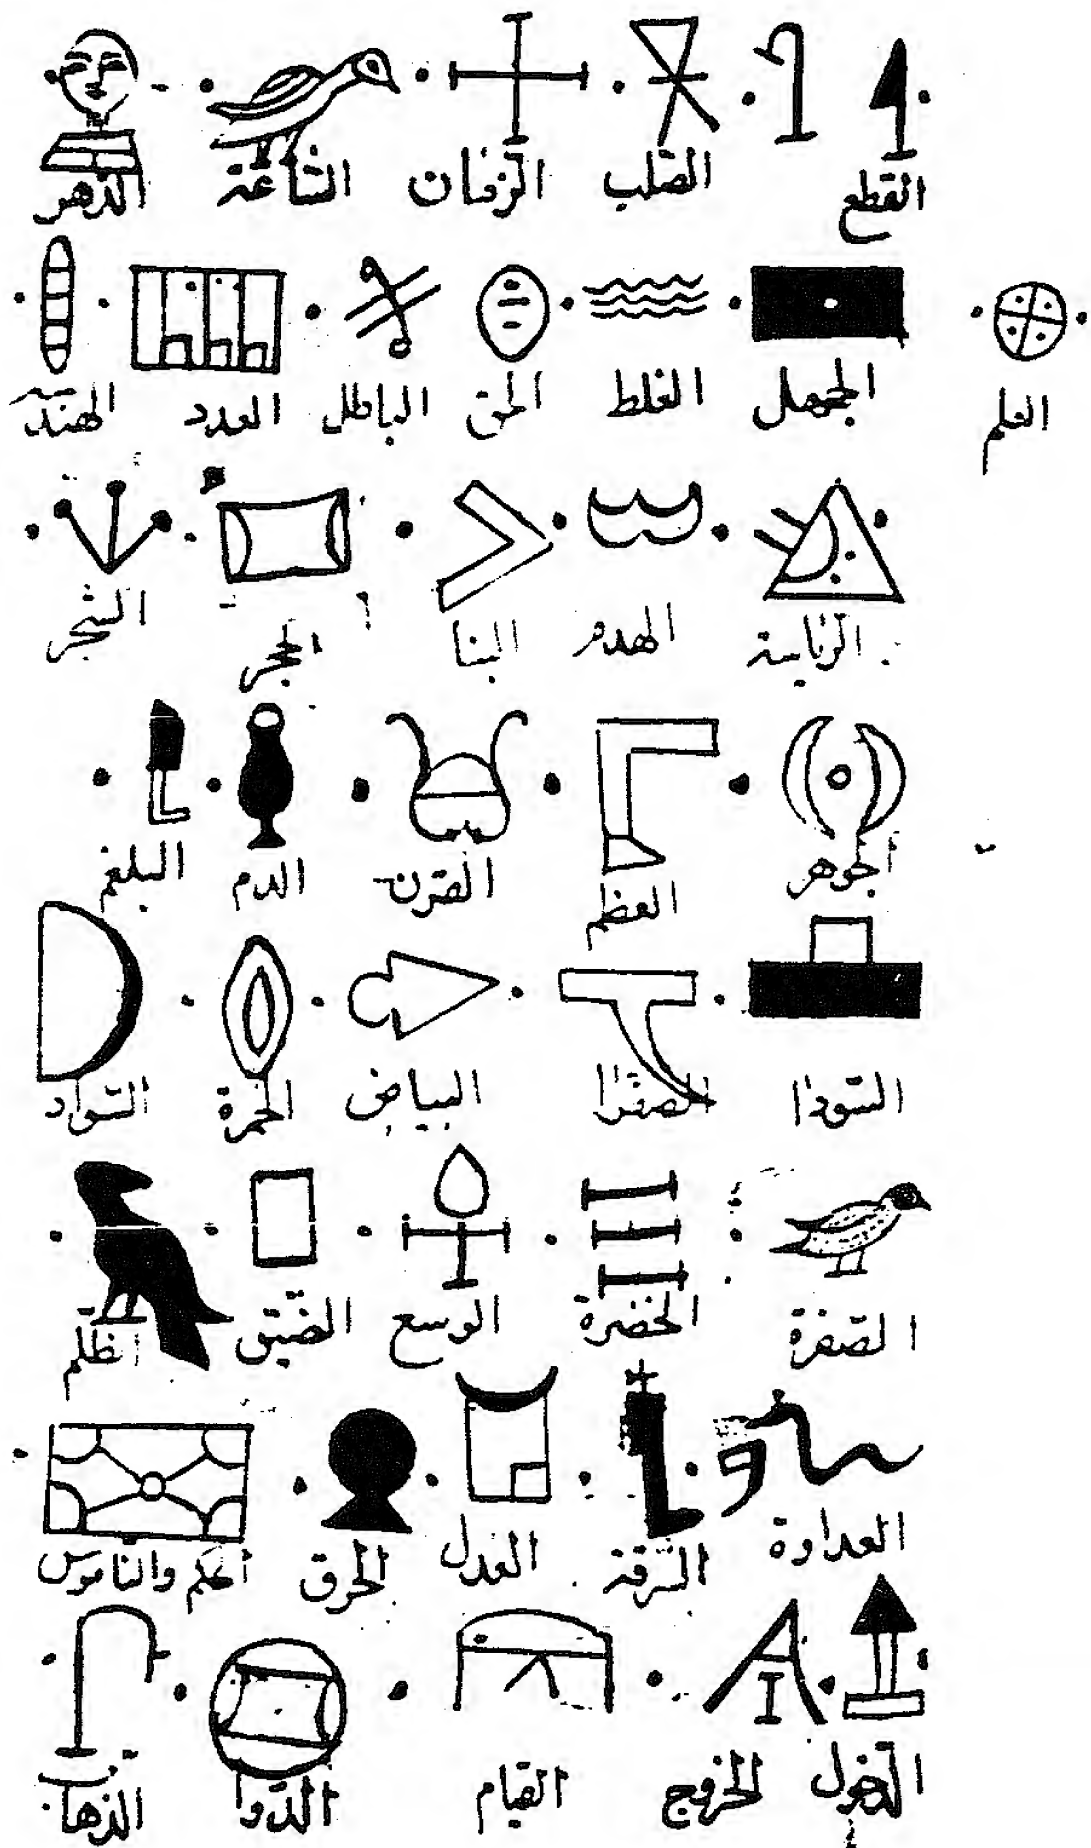 القطع الصلب الزمان الساعة الدهر
العلم الجهل الغلط الحق الباطل العدد
الهدم البنا الحجر الشجر
الجوهر العظم القرن الدم البلغم
السودا الصفرا البياض الحمرة السواد
الصفرة الخضرة الوسع الضيق الظلم
العداوة السرقة العدل الحرق الحكم والناموس
الدخول الخروج القيام الدوا الذهاب